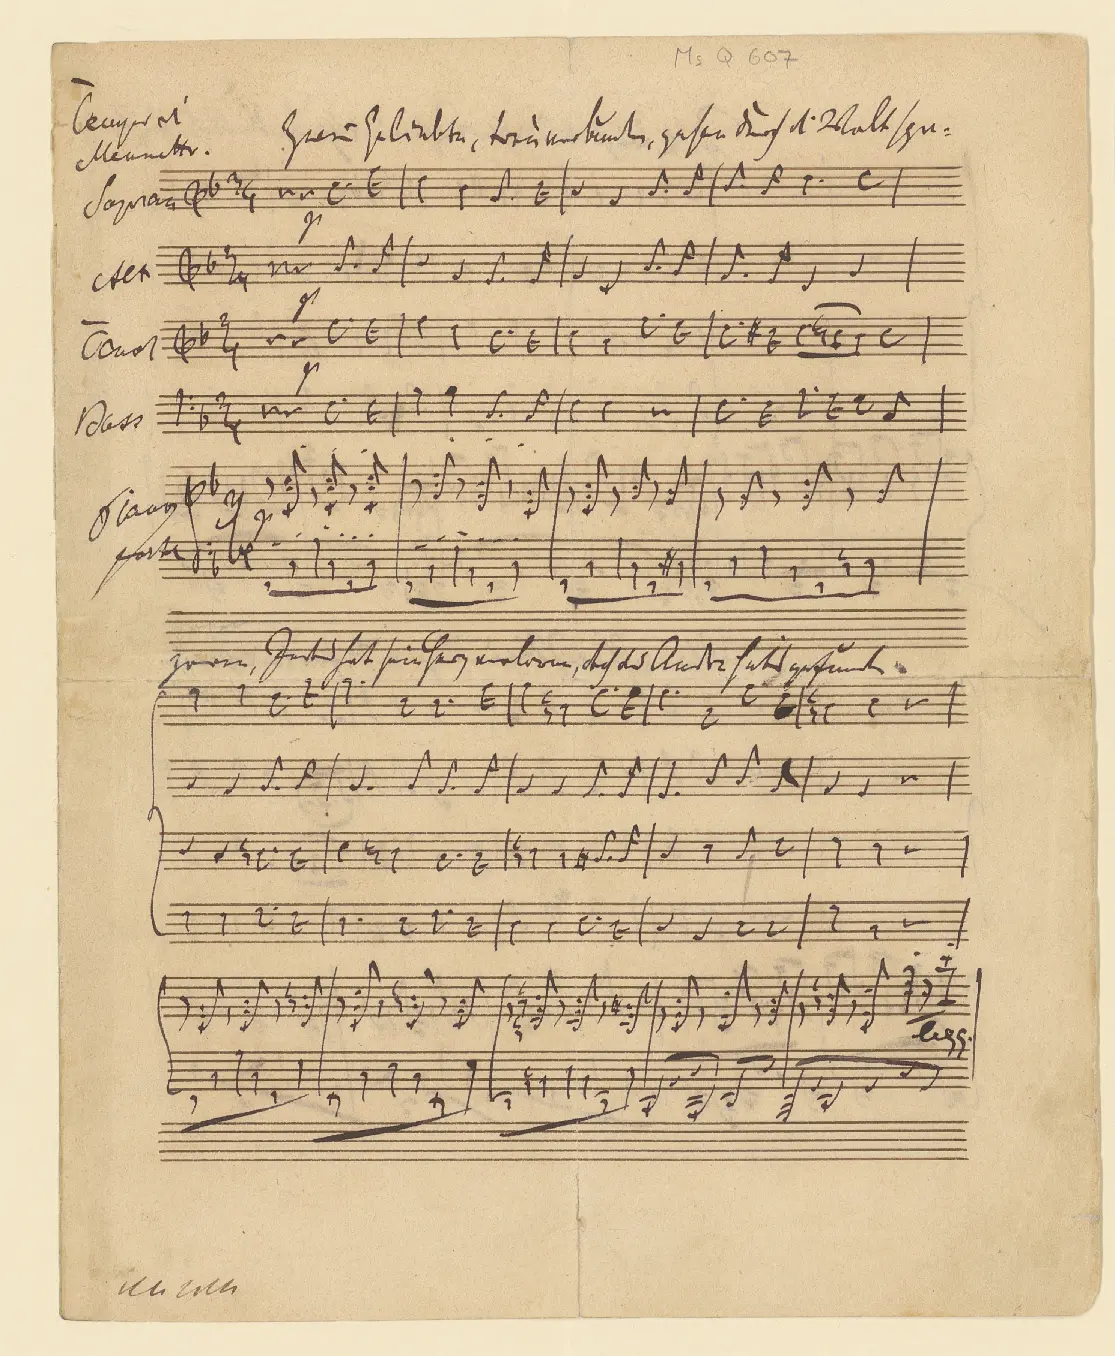 Ms Q 607
Tempo di
Menuetto.
Zwei Geliebte, treuverbunden, gehen durch d. Welt spa=
Sopran
p
Alt
p
Tenor
p
Bass
Piano
p
forte
zieren, Jedes hat sein Herz verloren, doch das Andre hat's gefunden.
legg.